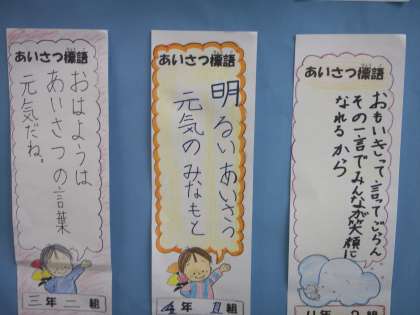 あいさつ標語
おはようは
あいさつの言葉
元気だね。
三年二組
あいさつ標語
明るいあいさつ
元気のみなもと
年 組
あいさつ標語
おもいきって言ってごらん
その一言でみんなが笑顔に
なれるから
年 2 組